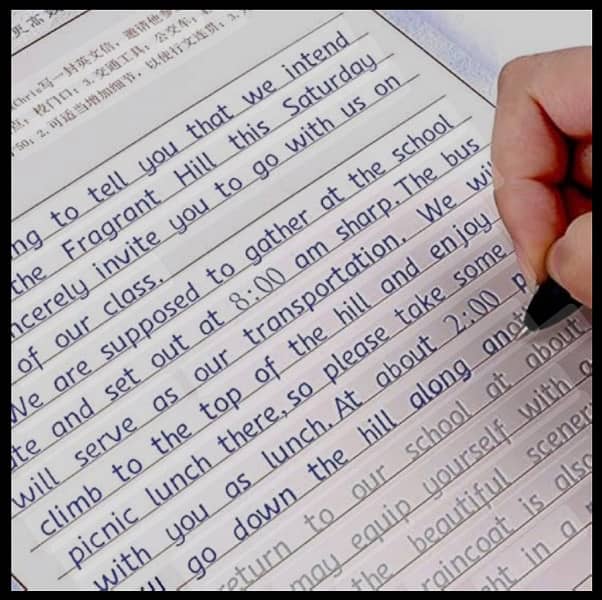 Chris写一封英文信，邀请他参
点：校门口；3.交通工具：公交车；
50；2.可适当增加细节，以使行文连贯；3.
ng to tell you that we intend
the Fragrant Hill this Saturday
ncerely invite you to go with us on
of our class.
We are supposed to gather at the school
te and set out at 8:00 am sharp. The bus
will serve as our transportation. We wi
climb to the top of the hill and enjoy
picnic lunch there, so please take some
with you as lunch. At about 2:00 p
go down the hill along anot
return to our school at about
may equip yourself with a
the beautiful scener
raincoat is also
ht in a